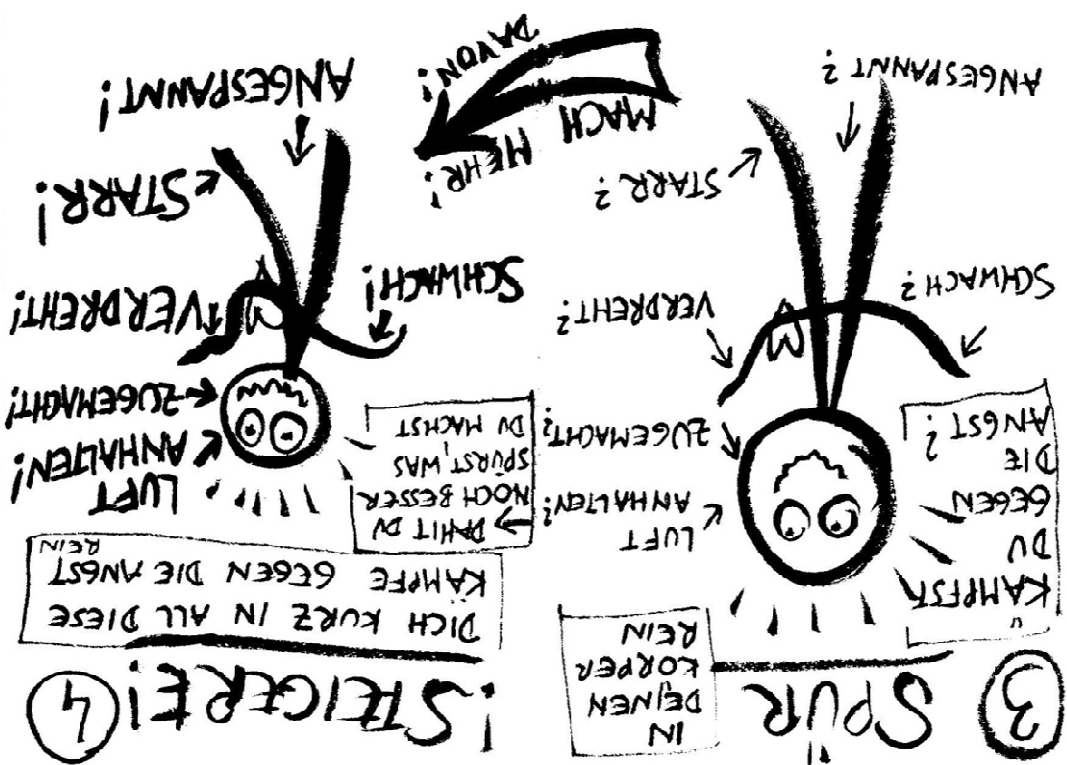 3
SPÜR
IN
DEINEN
KÖRPER
REIN
KÄMPFST
DU
GEGEN
DIE
ANGST?
LUFT
ANHALTEN?
ZUGEMACHT?
VERDREHT?
SCHWACH?
STARR?
ANGESPANNT?
MACH MEHR!
DAVON!
!STEIGERE!
4
DICH KURZ IN ALL DIESE
KÄMPFE GEGEN DIE ANGST
REIN
DAMIT DU
NOCH BESSER
SPÜRST, WAS
DU MACHST
LUFT
ANHALTEN!
ZUGEMACHT!
VERDREHT!
SCHWACH!
STARR!
ANGESPANNT!